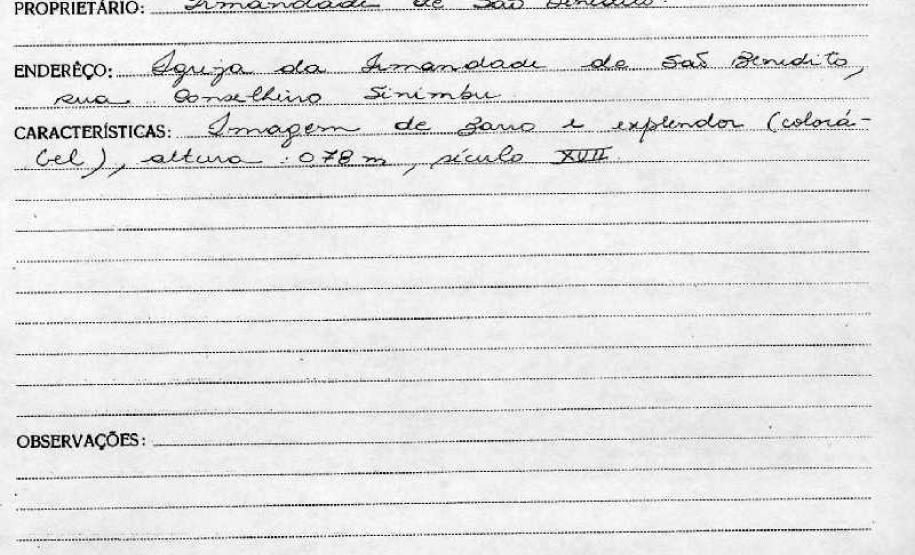 PROPRIETÁRIO: Irmandade de São Benedito.
ENDERÊÇO: Igreja da Irmandade de São Benedito,
rua Conselheiro Sinimbu
CARACTERÍSTICAS: Imagem de barro e explendor (colorá-
bel), altura: 078 m, século XVII.
OBSERVAÇÕES: